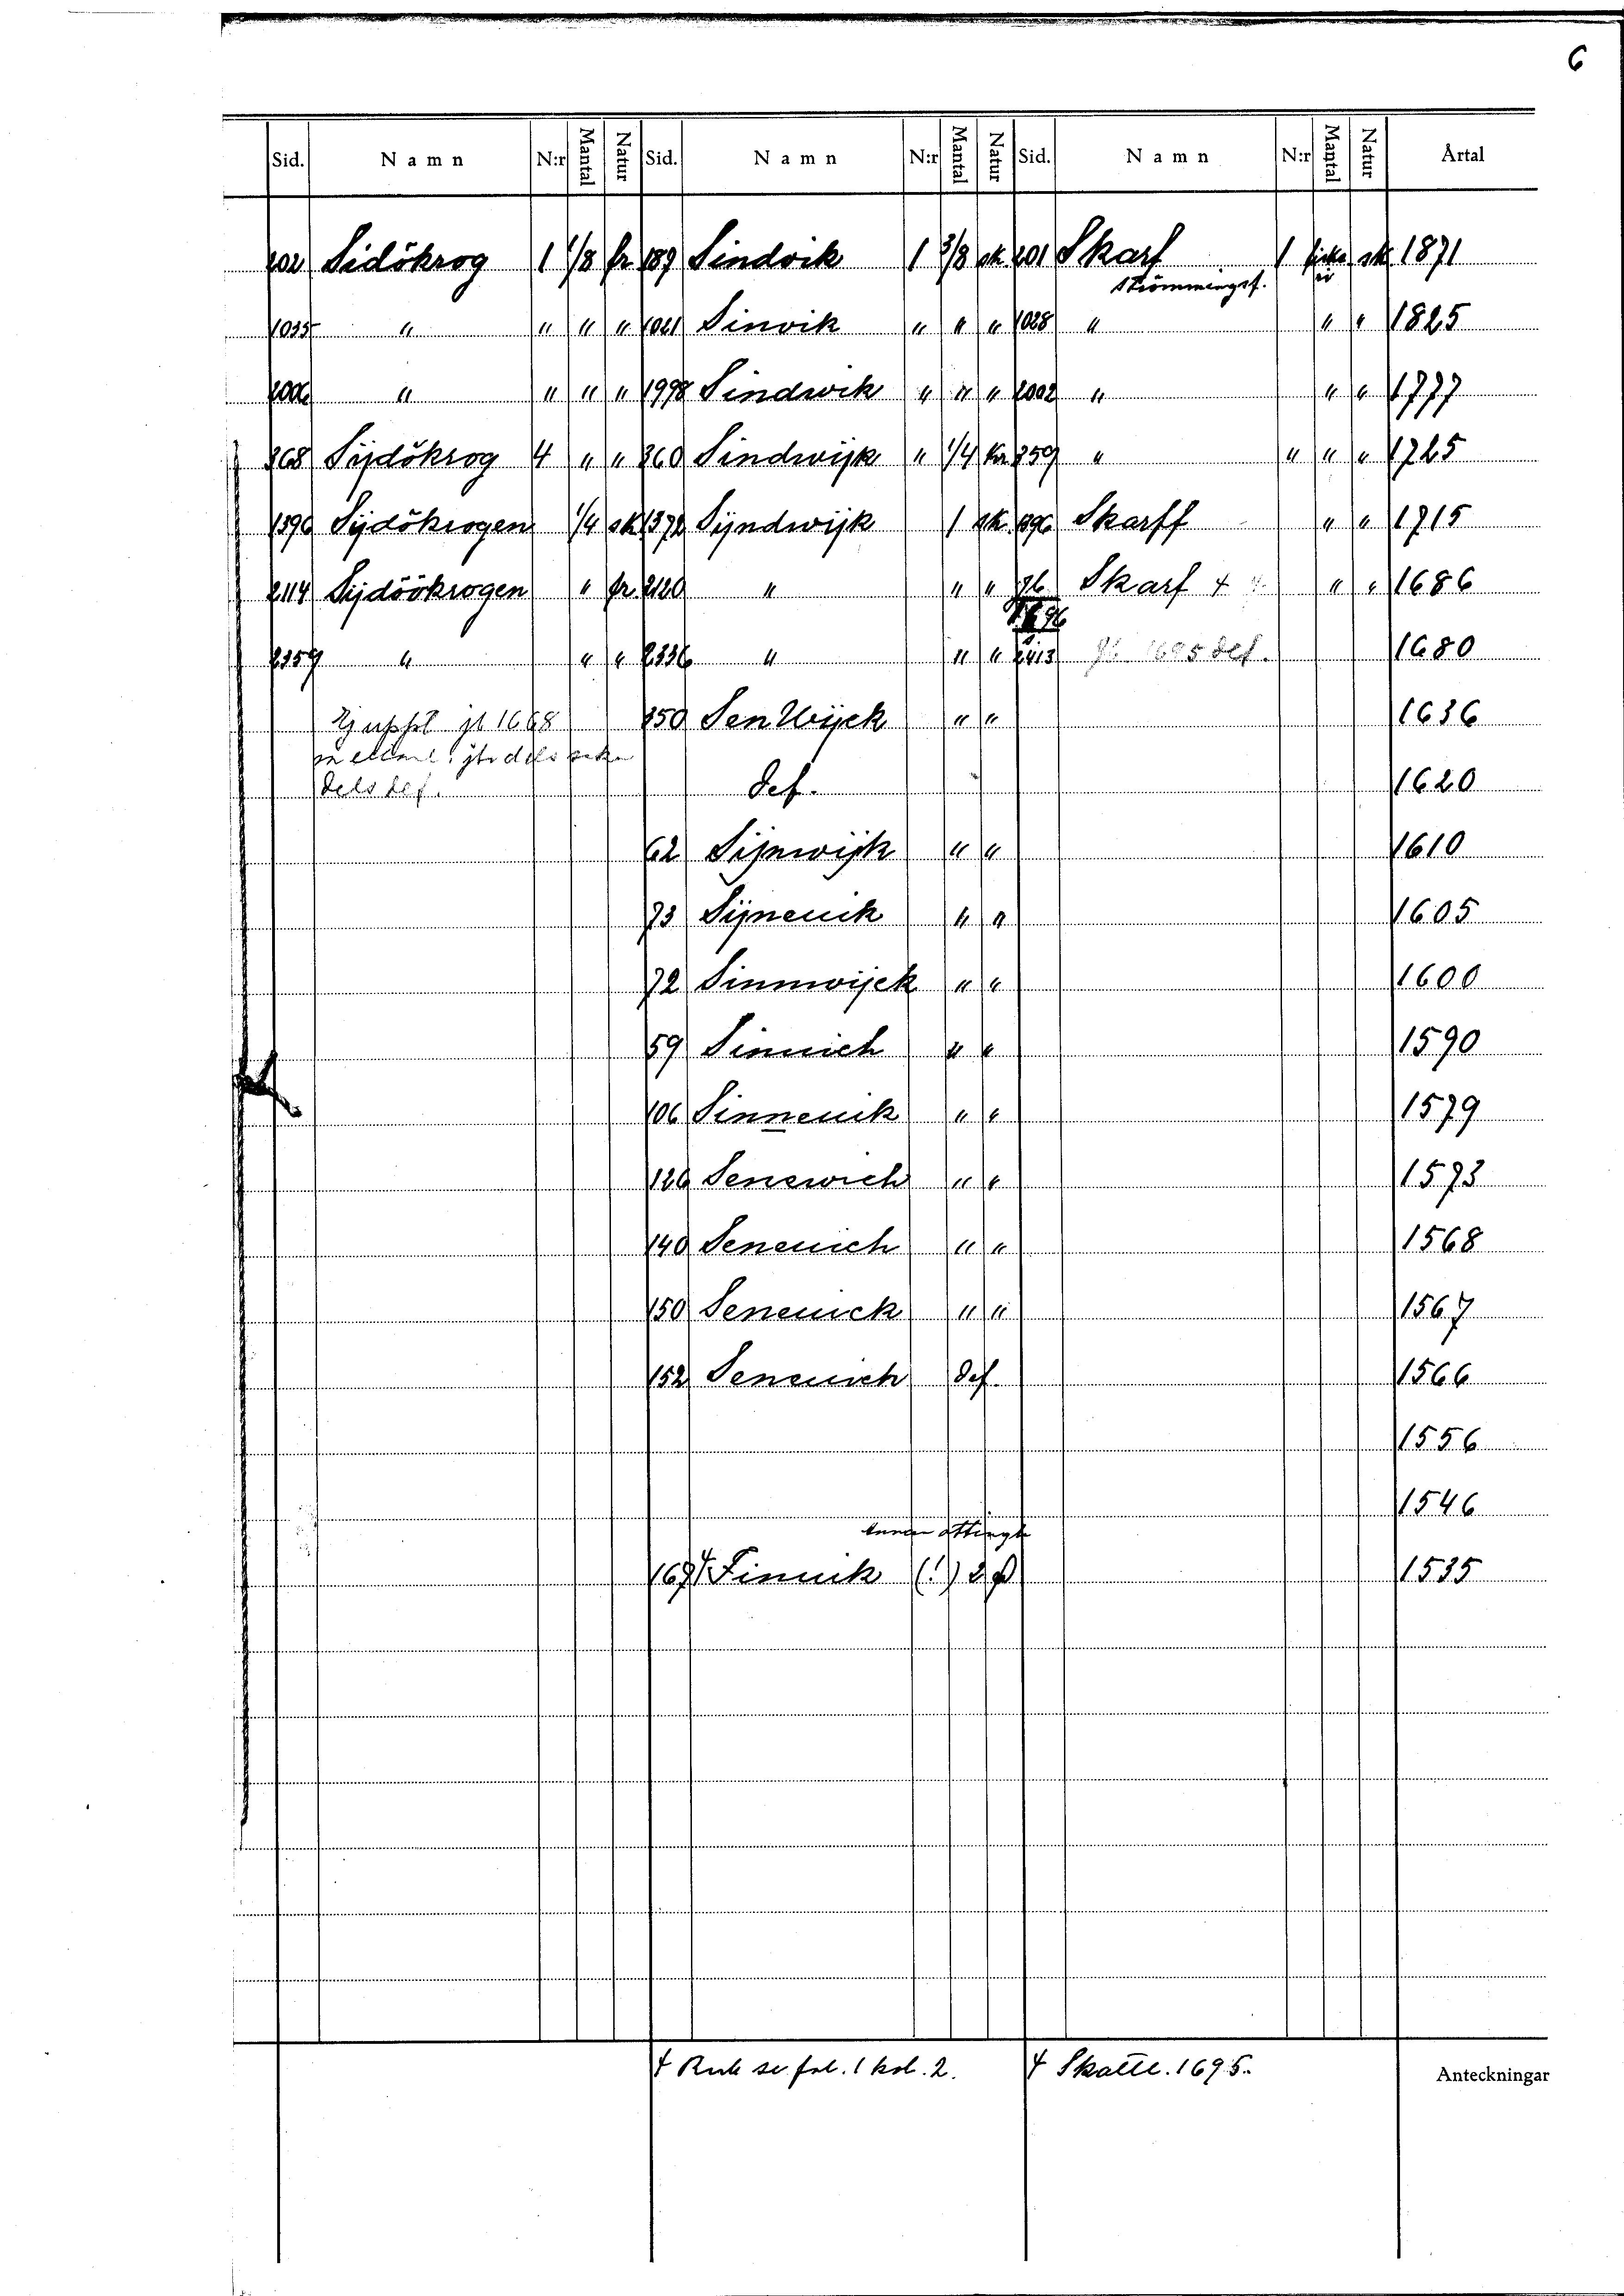 6
Sid. Namn N:r Mantal Natur Sid. Namn N:r Mantal Natur Sid. Namn N:r Mantal Natur Årtal
202 Sidökrog 1 1/8 fr 189 Sindvik 1 3/8 sk 201 Skarf 1 sk 1871
strömmingsf.
1035 " " " " 1021 Sinvik " " " 1028 " " " 1825
2006 " " " " 1998 Sindwik " " " 2002 " " " 1777
368 Sijdökrog 4 " " 360 Sindwijk " 1/4 kr 359 " " " " 1725
1396 Sijdökrogen 1/4 sk 1372 Sijndwijk 1 sk 1396 Skarff " " 1715
2114 Sijdöökrogen " fr. 2120 " " " 96 Skarf + " " 1686
2359 " " " 2336 " " " 2413 jb 1695 def. 1680
Ej uppt jb 1668 350 Sen Wijck " " 1636
dels def. def. 1620
62 Sijnwijk " " 1610
73 Sijneuik " " 1605
72 Sinnwijck " " 1600
59 Sinuich " " 1590
106 Sinneuik " " 1579
126 Senewich " " 1573
140 Seneuich " " 1568
150 Seneuick " " 1567
152 Seneuich def. 1566
1556
1546
attingh
169 + Finuik (!) 2 1535
+ Rub se fol. 1 kol. 2. + Skatte. 1695. Anteckningar